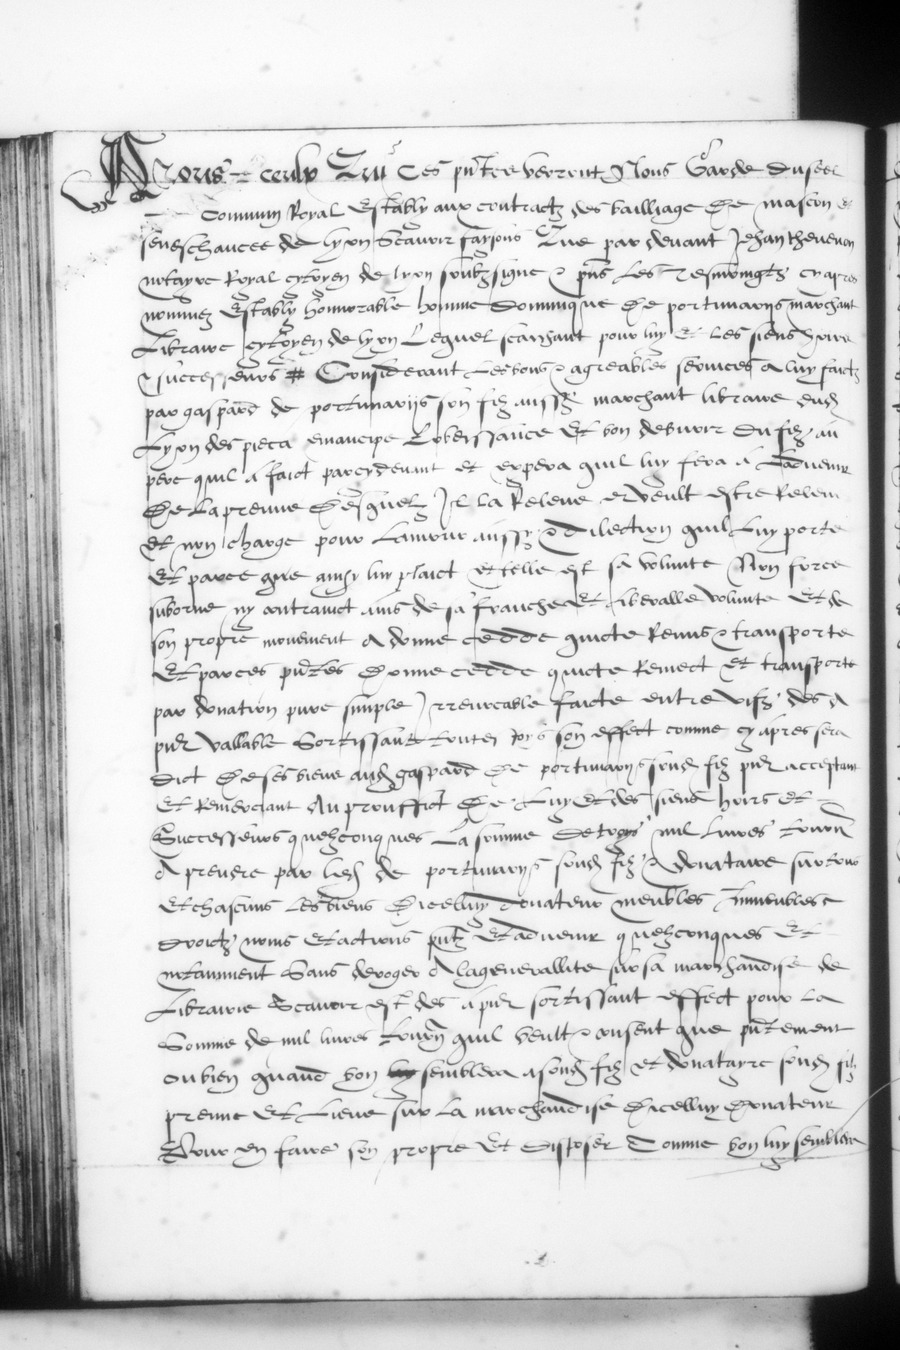 A tous ceulx Qui Ces pntes verront Nous Garde du seel
Commun Royal Estably aux contractz des bailliage De mascon &
seneschaucee de lyon Scavoir faisons Que par devant Jehan thevenon
notayre Royal cytoyen de lyon soubzsigne & pns Les Tesmoingtz cy apres
nommez Estably honnorable homme Dominique De portunaryis marchant
Libraire cytoyen de lyon Lequel scachant pour luy Et les siens hoirs
& successeurs # Considerant Les bons & agreables services A luy faictz
par gaspard de portunaryis son filz aussy marchant libraire dud
Lyon des pieca emancipe L'obeissance Et bon debvoir du filz au
pere quil a faict parcydevant et espera quil luy fera a Ladvenir
De La preuve Desquelz Il la Releve et veult estre Releve
Et non charge pour Lamour aussy & Dilection quil Luy porte
Et parce que ainsy luy plaict et telle est sa volunte Non force
suborne ny contrainct ains de sa franche Et liberalle volunte Et de
son propre mouvement A donne cedde quicte Remis & transporte
Et par ces pntes Donne cedde quicte Remect Et transporte
par donation pure simple Irrevocable faicte entre vifz des A
pnt Vallable Sortissant toutes foys son effect comme cy apres sera
dict De ses biens aud gaspard De portunaryis sond filz pnt acceptant
Et Remerciant Au prouffict De Luy Et des siens hoirs Et
Successeurs quelzconques La somme De troys mil Livres tourn
A prendre par led de portunaryis sond filz & donataire sur tous
Et chascuns Les biens Dicelluy Donateur meubles Immeubles
droictz noms Et actions pntz Et advenir quelzconques Et
notamment Sans deroger A la generallite sur sa marchandise de
Librairie Scavoir est des a pnt sortissant effect pour La
Somme de mil livres tourn quil veult & consent que pntement
ou bien quand bon semblera a sond filz et donatayre sond filz
prenne Et Lieve sur La marchandise Dicelluy Donateur
Pour en faire son propre Et Disposer Comme bon luy semblera